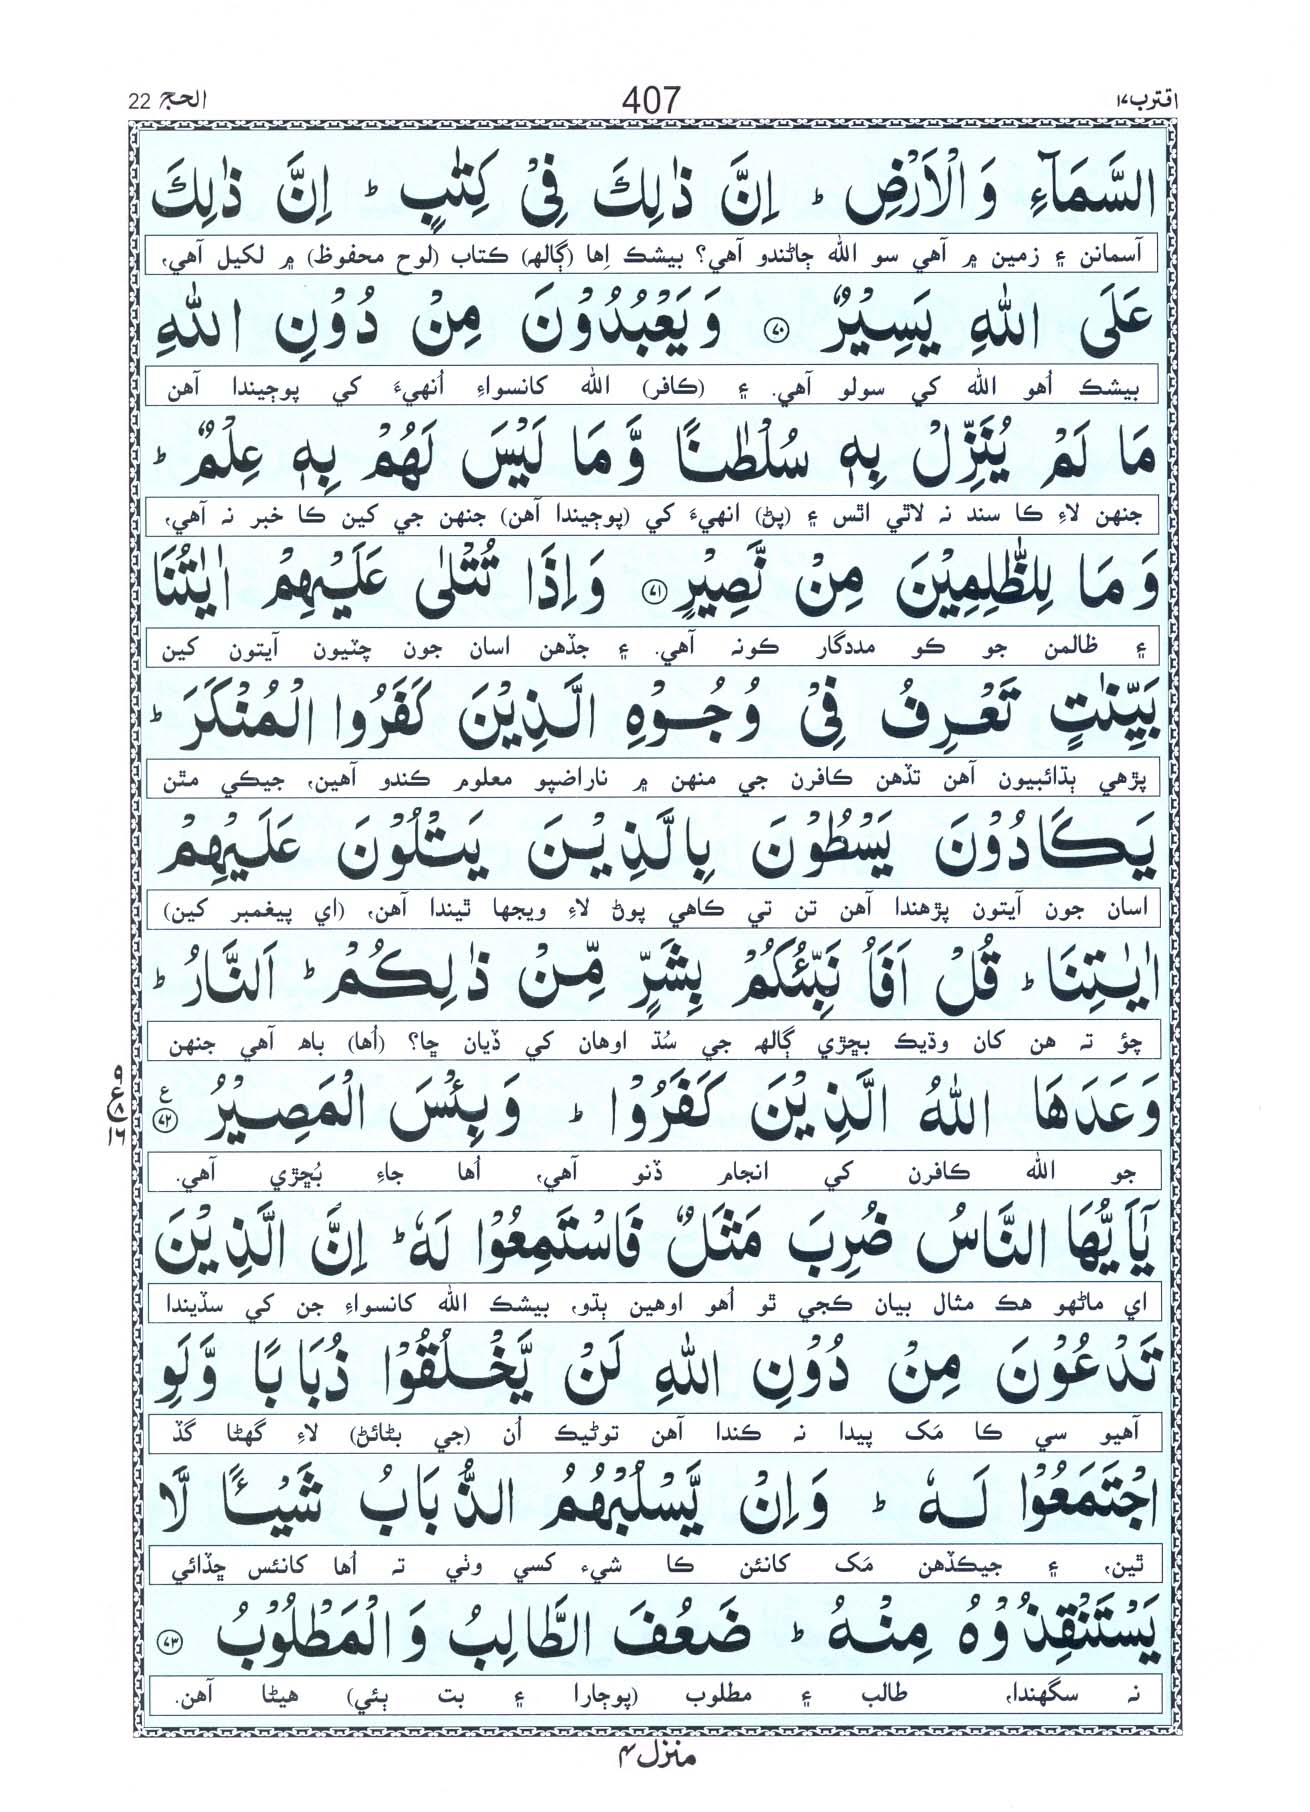 اقترب۱۷ 407 الحج 22
السَّمَآءِ وَ الْاَرْضِ ؕ اِنَّ ذٰلِكَ فِیْ كِتٰبٍ ؕ اِنَّ ذٰلِكَ
آسمانن ۽ زمين ۾ آهي سو الله ڄاڻندو آهي؟ بيشڪ اِها (ڳالهه) ڪتاب (لوح محفوظ) ۾ لکيل آهي،
عَلَی اللّٰهِ یَسِیْرٌ ۝۷۰ وَ یَعْبُدُوْنَ مِنْ دُوْنِ اللّٰهِ
بيشڪ اُهو الله کي سولو آهي. ۽ (ڪافر) الله کانسواءِ اُنهيءَ کي پوڄيندا آهن
مَا لَمْ یُنَزِّلْ بِهٖ سُلْطٰنًا وَّ مَا لَیْسَ لَهُمْ بِهٖ عِلْمٌ ؕ
جنهن لاءِ ڪا سند نہ لاٿي اٿس ۽ (پڻ) انهيءَ کي (پوڄيندا آهن) جنهن جي کين ڪا خبر نہ آهي،
وَ مَا لِلظّٰلِمِیْنَ مِنْ نَّصِیْرٍ ۝۷۱ وَ اِذَا تُتْلٰی عَلَیْهِمْ اٰیٰتُنَا
۽ ظالمن جو ڪو مددگار ڪونہ آهي. ۽ جڏهن اسان جون چٽيون آيتون کين
بَیِّنٰتٍ تَعْرِفُ فِیْ وُجُوْهِ الَّذِیْنَ كَفَرُوا الْمُنْكَرَ ؕ
پڙهي ٻڌائبيون آهن تڏهن ڪافرن جي منهن ۾ ناراضپو معلوم ڪندو آهين، جيڪي مٿن
یَكَادُوْنَ یَسْطُوْنَ بِالَّذِیْنَ یَتْلُوْنَ عَلَیْهِمْ
اسان جون آيتون پڙهندا آهن تن تي ڪاهي پوڻ لاءِ ويجها ٿيندا آهن، (اي پيغمبر کين)
اٰیٰتِنَا ؕ قُلْ اَفَاُ نَبِّئُكُمْ بِشَرٍّ مِّنْ ذٰلِكُمْ ؕ اَلنَّارُ ؕ
چؤ تہ هن کان وڌيڪ بڇڙي ڳالهه جي سُڌ اوهان کي ڏيان ڇا؟ (اُها) باهه آهي جنهن
وَعَدَهَا اللّٰهُ الَّذِیْنَ كَفَرُوْا ؕ وَ بِئْسَ الْمَصِیْرُ ۝۷۲ ع
جو الله ڪافرن کي انجام ڏنو آهي، اُها جاءِ بُڇڙي آهي.
یٰۤاَیُّهَا النَّاسُ ضُرِبَ مَثَلٌ فَاسْتَمِعُوْا لَهٗ ؕ اِنَّ الَّذِیْنَ
اي ماڻهو هڪ مثال بيان ڪجي ٿو اُهو اوهين ٻڌو، بيشڪ الله کانسواءِ جن کي سڏيندا
تَدْعُوْنَ مِنْ دُوْنِ اللّٰهِ لَنْ یَّخْلُقُوْا ذُبَابًا وَّ لَوِ
آهيو سي ڪا مَک پيدا نہ ڪندا آهن توڻيڪ اُن (جي بڻائڻ) لاءِ گهڻا گڏ
اجْتَمَعُوْا لَهٗ ؕ وَ اِنْ یَّسْلُبْهُمُ الذُّبَابُ شَیْـًٔا لَّا
ٿين، ۽ جيڪڏهن مَک کانئن ڪا شيء کسي وٺي تہ اُها کانئس ڇڏائي
یَسْتَنْقِذُوْهُ مِنْهُ ؕ ضَعُفَ الطَّالِبُ وَ الْمَطْلُوْبُ ۝۷۳
نہ سگهندا، طالب ۽ مطلوب (پوڄارا ۽ بت ٻئي) هيڻا آهن.
منزل ۴